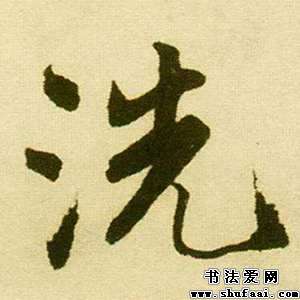 洗
书法爱网
www.shufaai.com